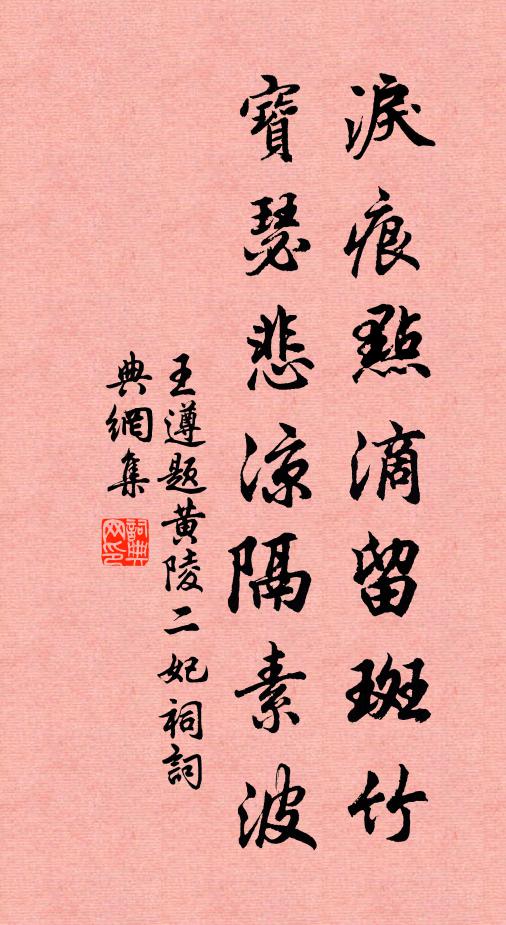 淚痕點滴留斑竹
寶瑟悲涼隔素波
王遵题黄陵二妃祠詞
典網集
詞典
网印